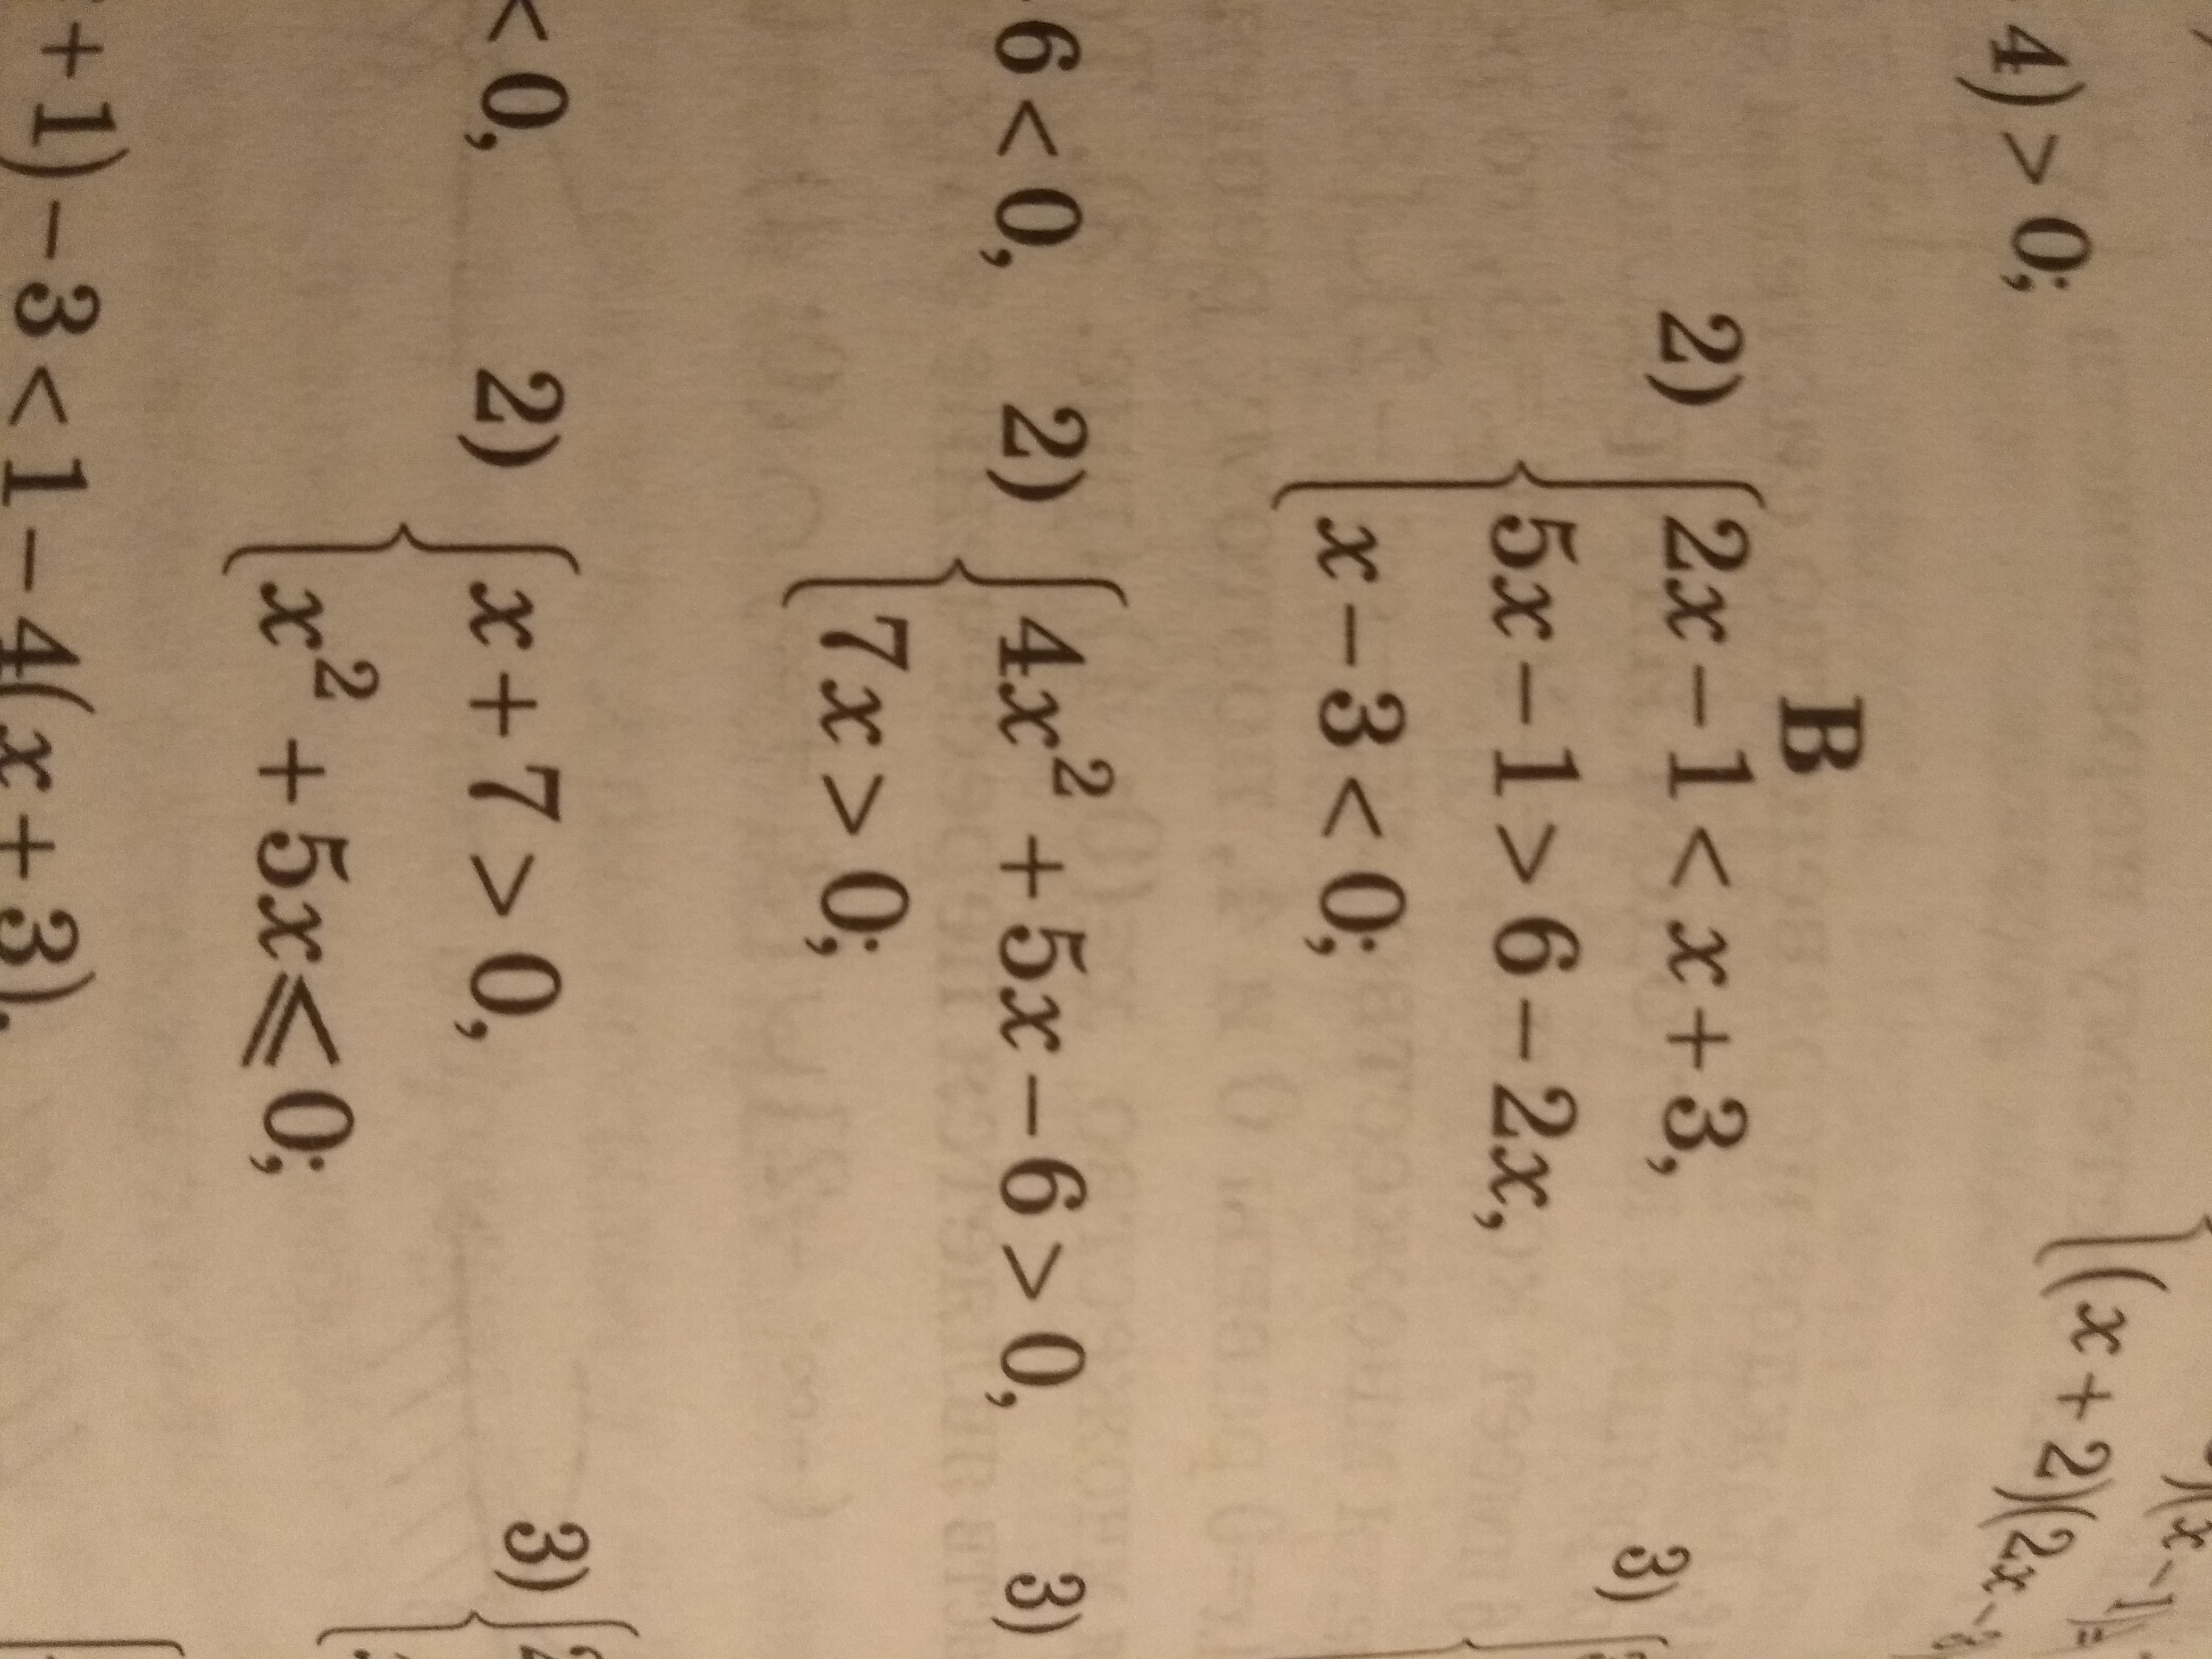 4) > 0;
(x + 2)(2x −
B
2) 2x − 1 < x + 3,
5x − 1 > 6 − 2x,
x − 3 < 0;
3)
6 < 0,
2) 4x² + 5x − 6 > 0,
7x > 0;
3)
< 0,
2) x + 7 > 0,
x² + 5x ⩽ 0;
3)
+ 1) − 3 < 1 − 4(x + 3),